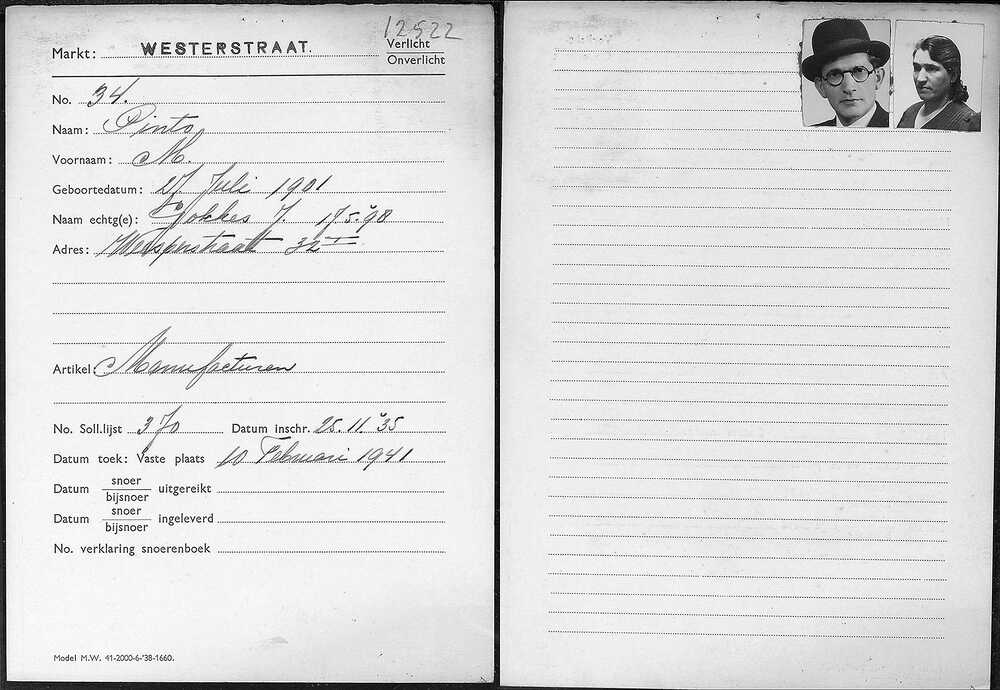 12522
Markt: WESTERSTRAAT. Verlicht
Onverlicht
No. 34.
Naam: Pinto
Voornaam: M.
Geboortedatum: 27 Juli 1901
Naam echtg(e): Gokkes J. 17.5.'98
Adres: Weesperstraat 32 I
Artikel: Manufacturen
No. Soll.lijst 370 Datum inschr. 25.11.'35
Datum toek: Vaste plaats 10 Februari 1941
Datum snoer
bijsnoer uitgereikt
Datum snoer
bijsnoer ingeleverd
No. verklaring snoerenboek
Model M.W. 41-2000-6-'38-1660.